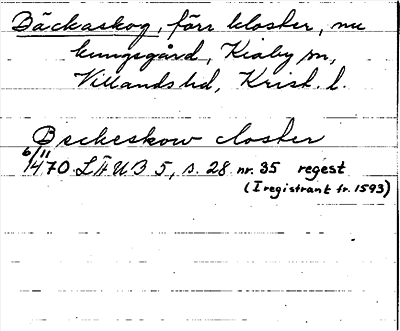 Bäckaskog, förr kloster, nu
kungsgård, Kiaby sn,
Villands hd, Krist. l.
Beckeskow closter
6/11 1470 LÄUB 5, s. 28 nr. 35 regest
(I registrant fr. 1593)